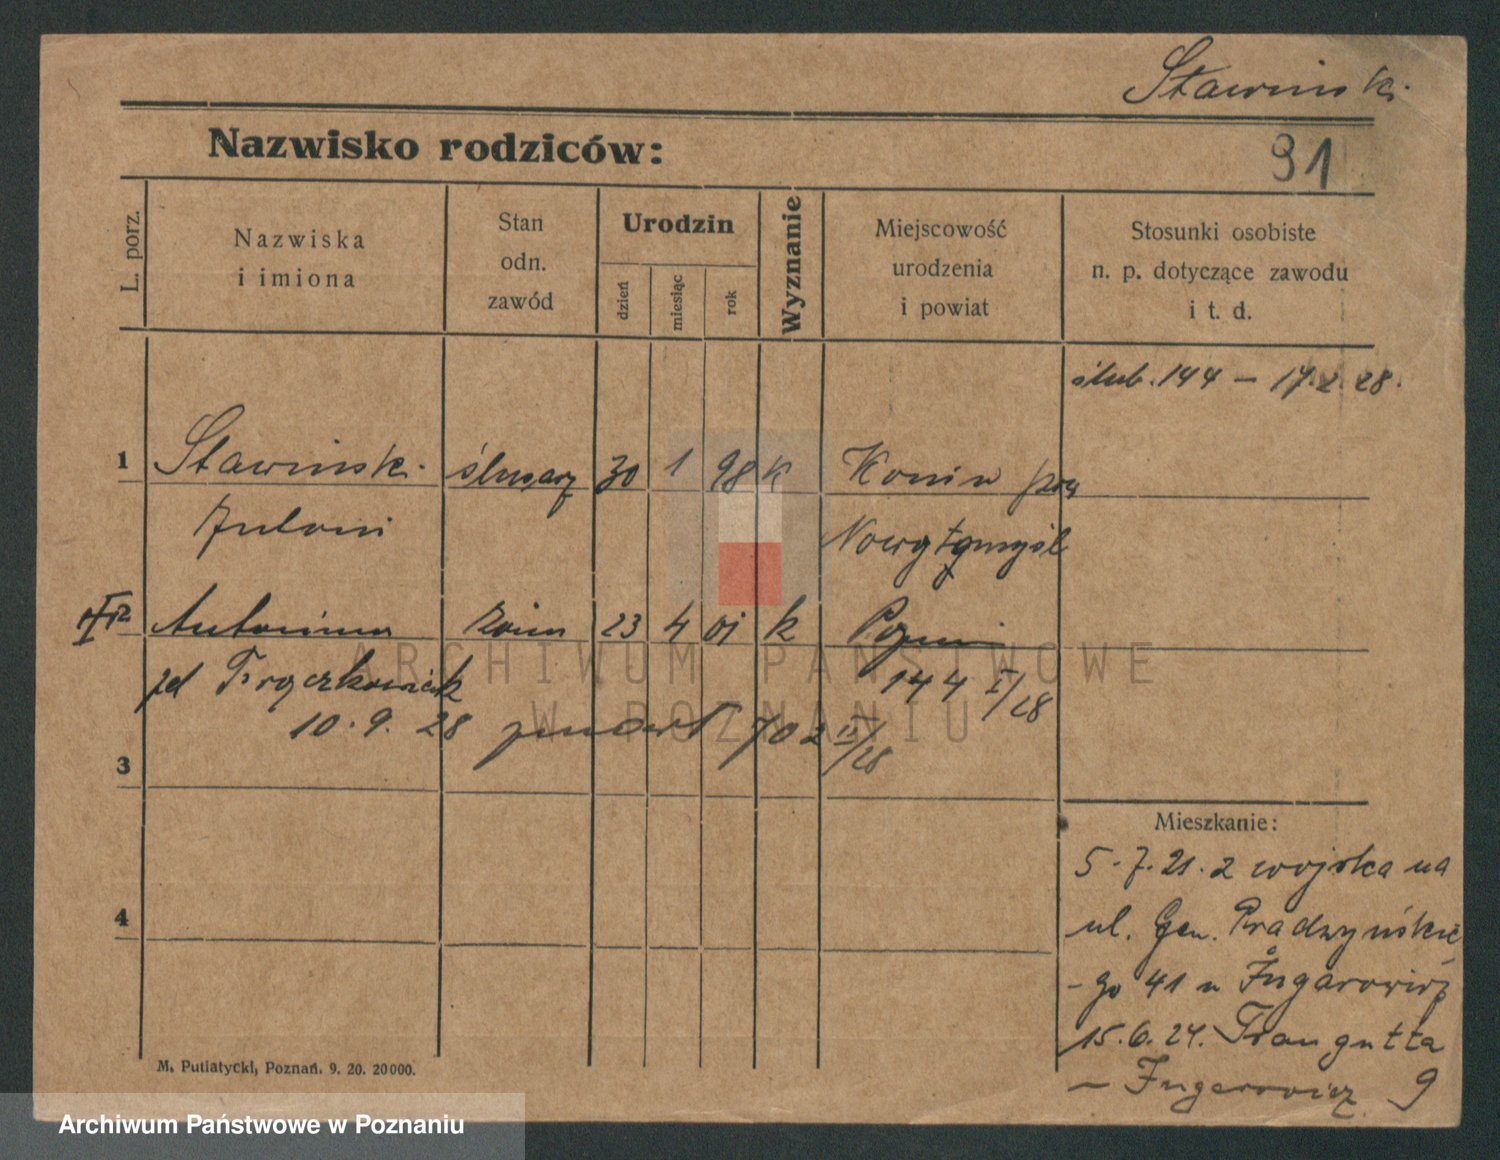 Stawinski
Nazwisko rodziców:
91
L. porz.
Nazwiska
i imiona
Stan
odn.
zawód
Urodzin
dzień
miesiąc
rok
Wyznanie
Miejscowość
urodzenia
i powiat
Stosunki osobiste
n. p. dotyczące zawodu
i t. d.
ślub. 144 – 17.2.28.
1 Stawinski ślusarz 30 1 98 k Konin pow
Antoni Nowytomyśl
Antonina żona 23 4 01 k
zd Frąckowiak 144 I/28
10.9.28 702 IV/28
3
4
Mieszkanie:
5.7.21. z wojska na
ul. Gen. Prądzyńskie
-go 41 u
15.6.24. Traugutta
9
M. Putiatycki, Poznań. 9. 20. 20000.
ARCHIWUM PAŃSTWOWE
W POZNANIU
Archiwum Państwowe w Poznaniu